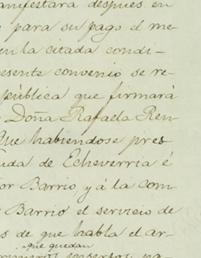 anifestará despues en
e para su pago el me
en la citada condi-
esente convenio se re-
pública que firmará
Doña Rafaela Ren
Que habiendose pres
uda de Echeverria é
or Barrio y á la com
e Barrio el servicio de
s de que habla el ar-
que quedan